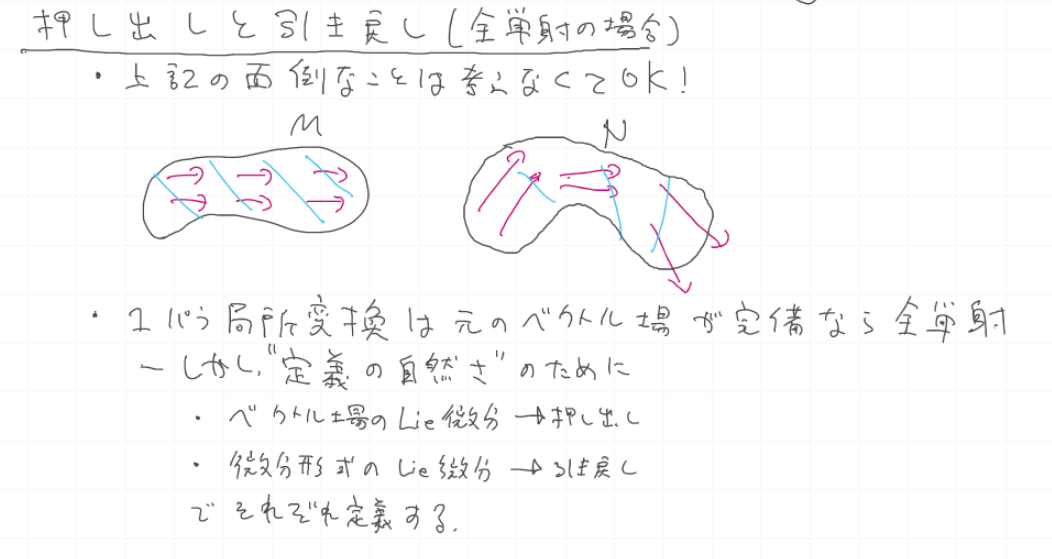 押し出しと引き戻し(全単射の場合)
・上記の面倒なことは考えなくてOK!
M
N
・1パラ局所変換は元のベクトル場が完備なら全単射
ーしかし、"定義の自然さ"のために
・ベクトル場のLie微分→押し出し
・微分形式のLie微分→引き戻し
でそれぞれ定義する.